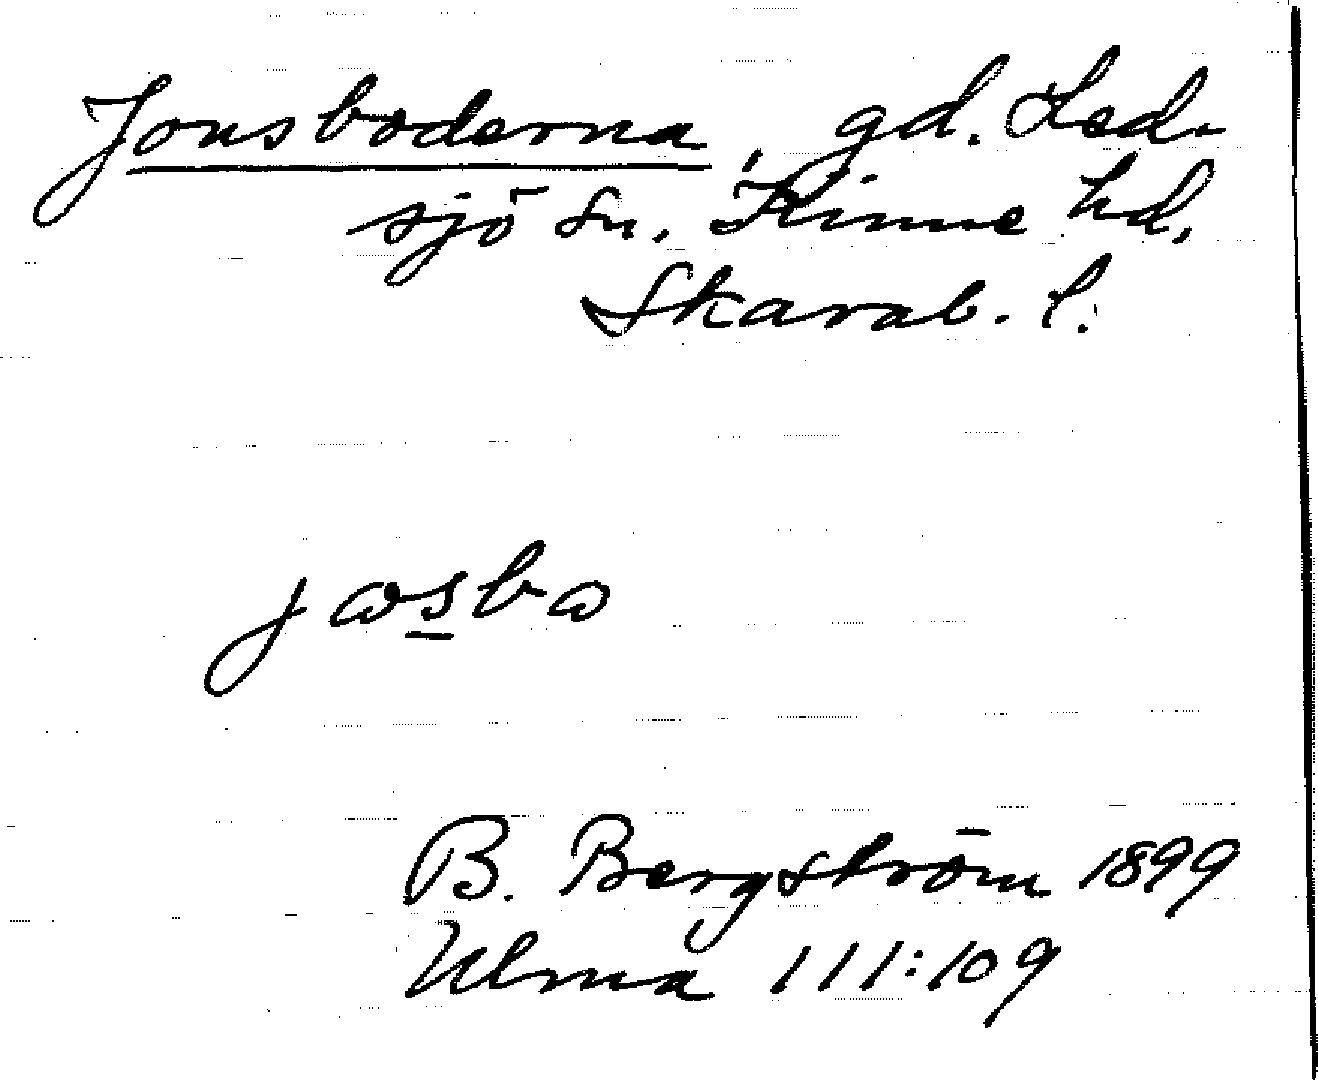 Jonsboderna, gd. Led-
sjö sn. Kinne hd,
Skarab. l.
jɷsbɷ
B. Bergström 1899
Ulma 111:109